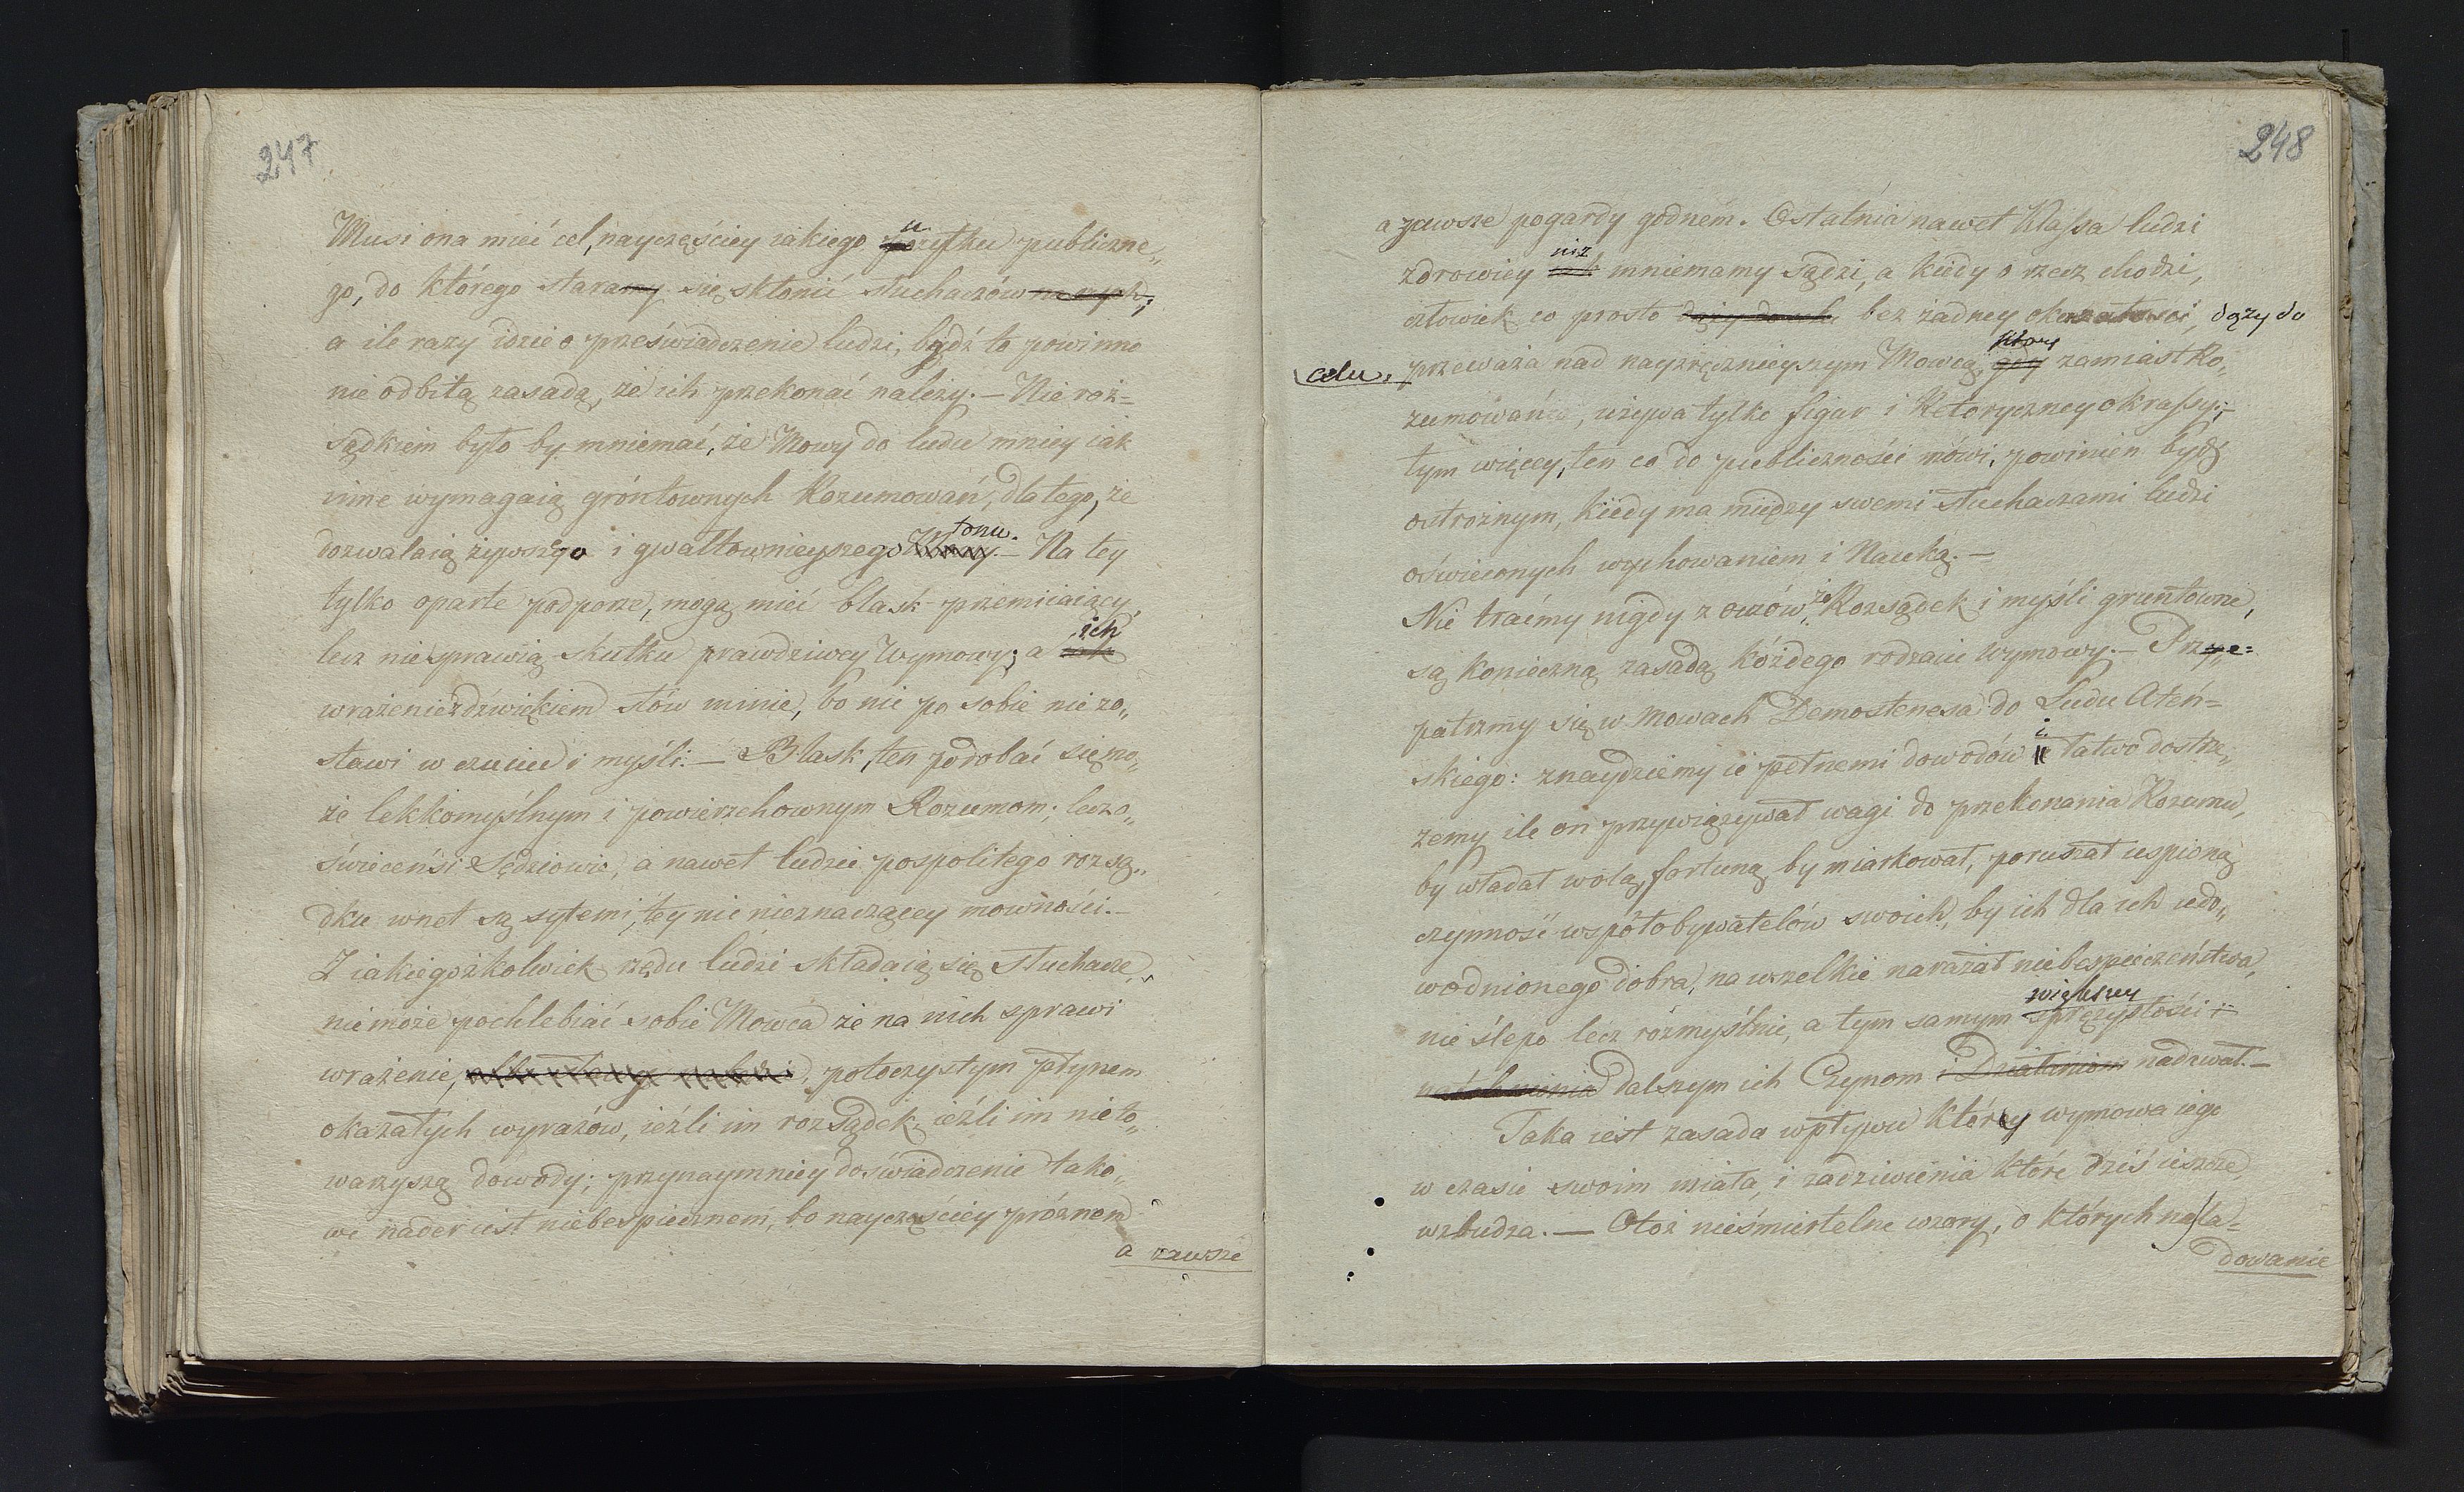 247
Musi ona mieć cel, nayczęściey iakiego użytku publiczne„
go, do którego staramy się skłonić słuchaczów naszych;
a ile razy idzie o przeświadczenie ludzi, bądź to powinno
nie odbitą zasadą, że ich przekonać należy. — Nie roz=
sądkiem było by mniemać, że Mowy do ludu mniey iak
inne wymagaią gróntownych Rozumowań, dla tego, że
dozwalaią żywszego i gwałtownieyszego tonu. — Na tey
tylko oparte podporze, mogą mieć blask przemiiaiący,
lecz nie sprawią skutku prawdziwey Wymowy; a ich
wrażenie z dźwiękiem słów minie, bo nic po sobie nie zo„
stawi w czuciu i myśli. — Blask ten podobać się mo„
że lekkomyślnym i powierzchownym Rozumom; lecz o„
świeceńsi Sędziowie, a nawet ludzie pospolitego rozsą„
dku wnet są sytemi, tey nic nieznaczącey mowności. —
Z iakiegożkolwiek rzędu ludzi składaią się Słuchacze,
nie może pochlebiać sobie Mowca że na nich sprawi
wrażenie, potoczystym płynem
okazałych wyrazów, ieźli im rozsądek, ieźli im nie to„
warzyszą dowody; przynaymniey doświadczenie tako„
we nader iest niebespiecznem, bo nayczęściey próżnem
a zawsze
248
a zawsze pogardy godnem. Ostatnia nawet Klassa ludzi
niż
zdrowiey iak mniemamy sądzi, a kiedy o rzecz chodzi,
człowiek co prosto dąży do celu bez żadney okazałości, dąży do
który
celu. przeważa nad nayzręcznieyszym Mowcą, gdy zamiast Ro„
zumowań, używa tylko figur i Retoryczney okrassy; —
tym więcey, ten co do publiczności mówi, powinien bydź
ostrożnym, kiedy ma między swemi Słuchaczami ludzi
oświeconych wychowaniem i Nauką. —
Nie traćmy nigdy z oczów, że Rozsądek i myśli gruntowne,
są konieczną zasadą każdego rodzaiu wymowy. — Przy=
patrzmy się w mowach Demostenesa do Ludu Ateń=
skiego: znaydziemy ie pełnemi dowodów i łatwo dostrze„
żemy ile on przywiązywał wagi do przekonania Rozumu,
by władał wolą, fortuną by miarkował, poruszał uspioną
czynność współobywatelów swoich, by ich dla ich udo„
wodnionego dobra, na wszelkie narażał niebespieczeństwa,
większey
nie ślepo lecz rozmyślnie, a tym samym sprężystości i
natchnienia dalszym ich Czynom i Działaniom nadawał. —
Taka iest zasada wpływu który wymowa iego
w czasie swoim miała, i zadziwienia które dziś ieszcze,
wzbudza. — Otoż nieśmiertelne wzory, o których naśla=
dowanie